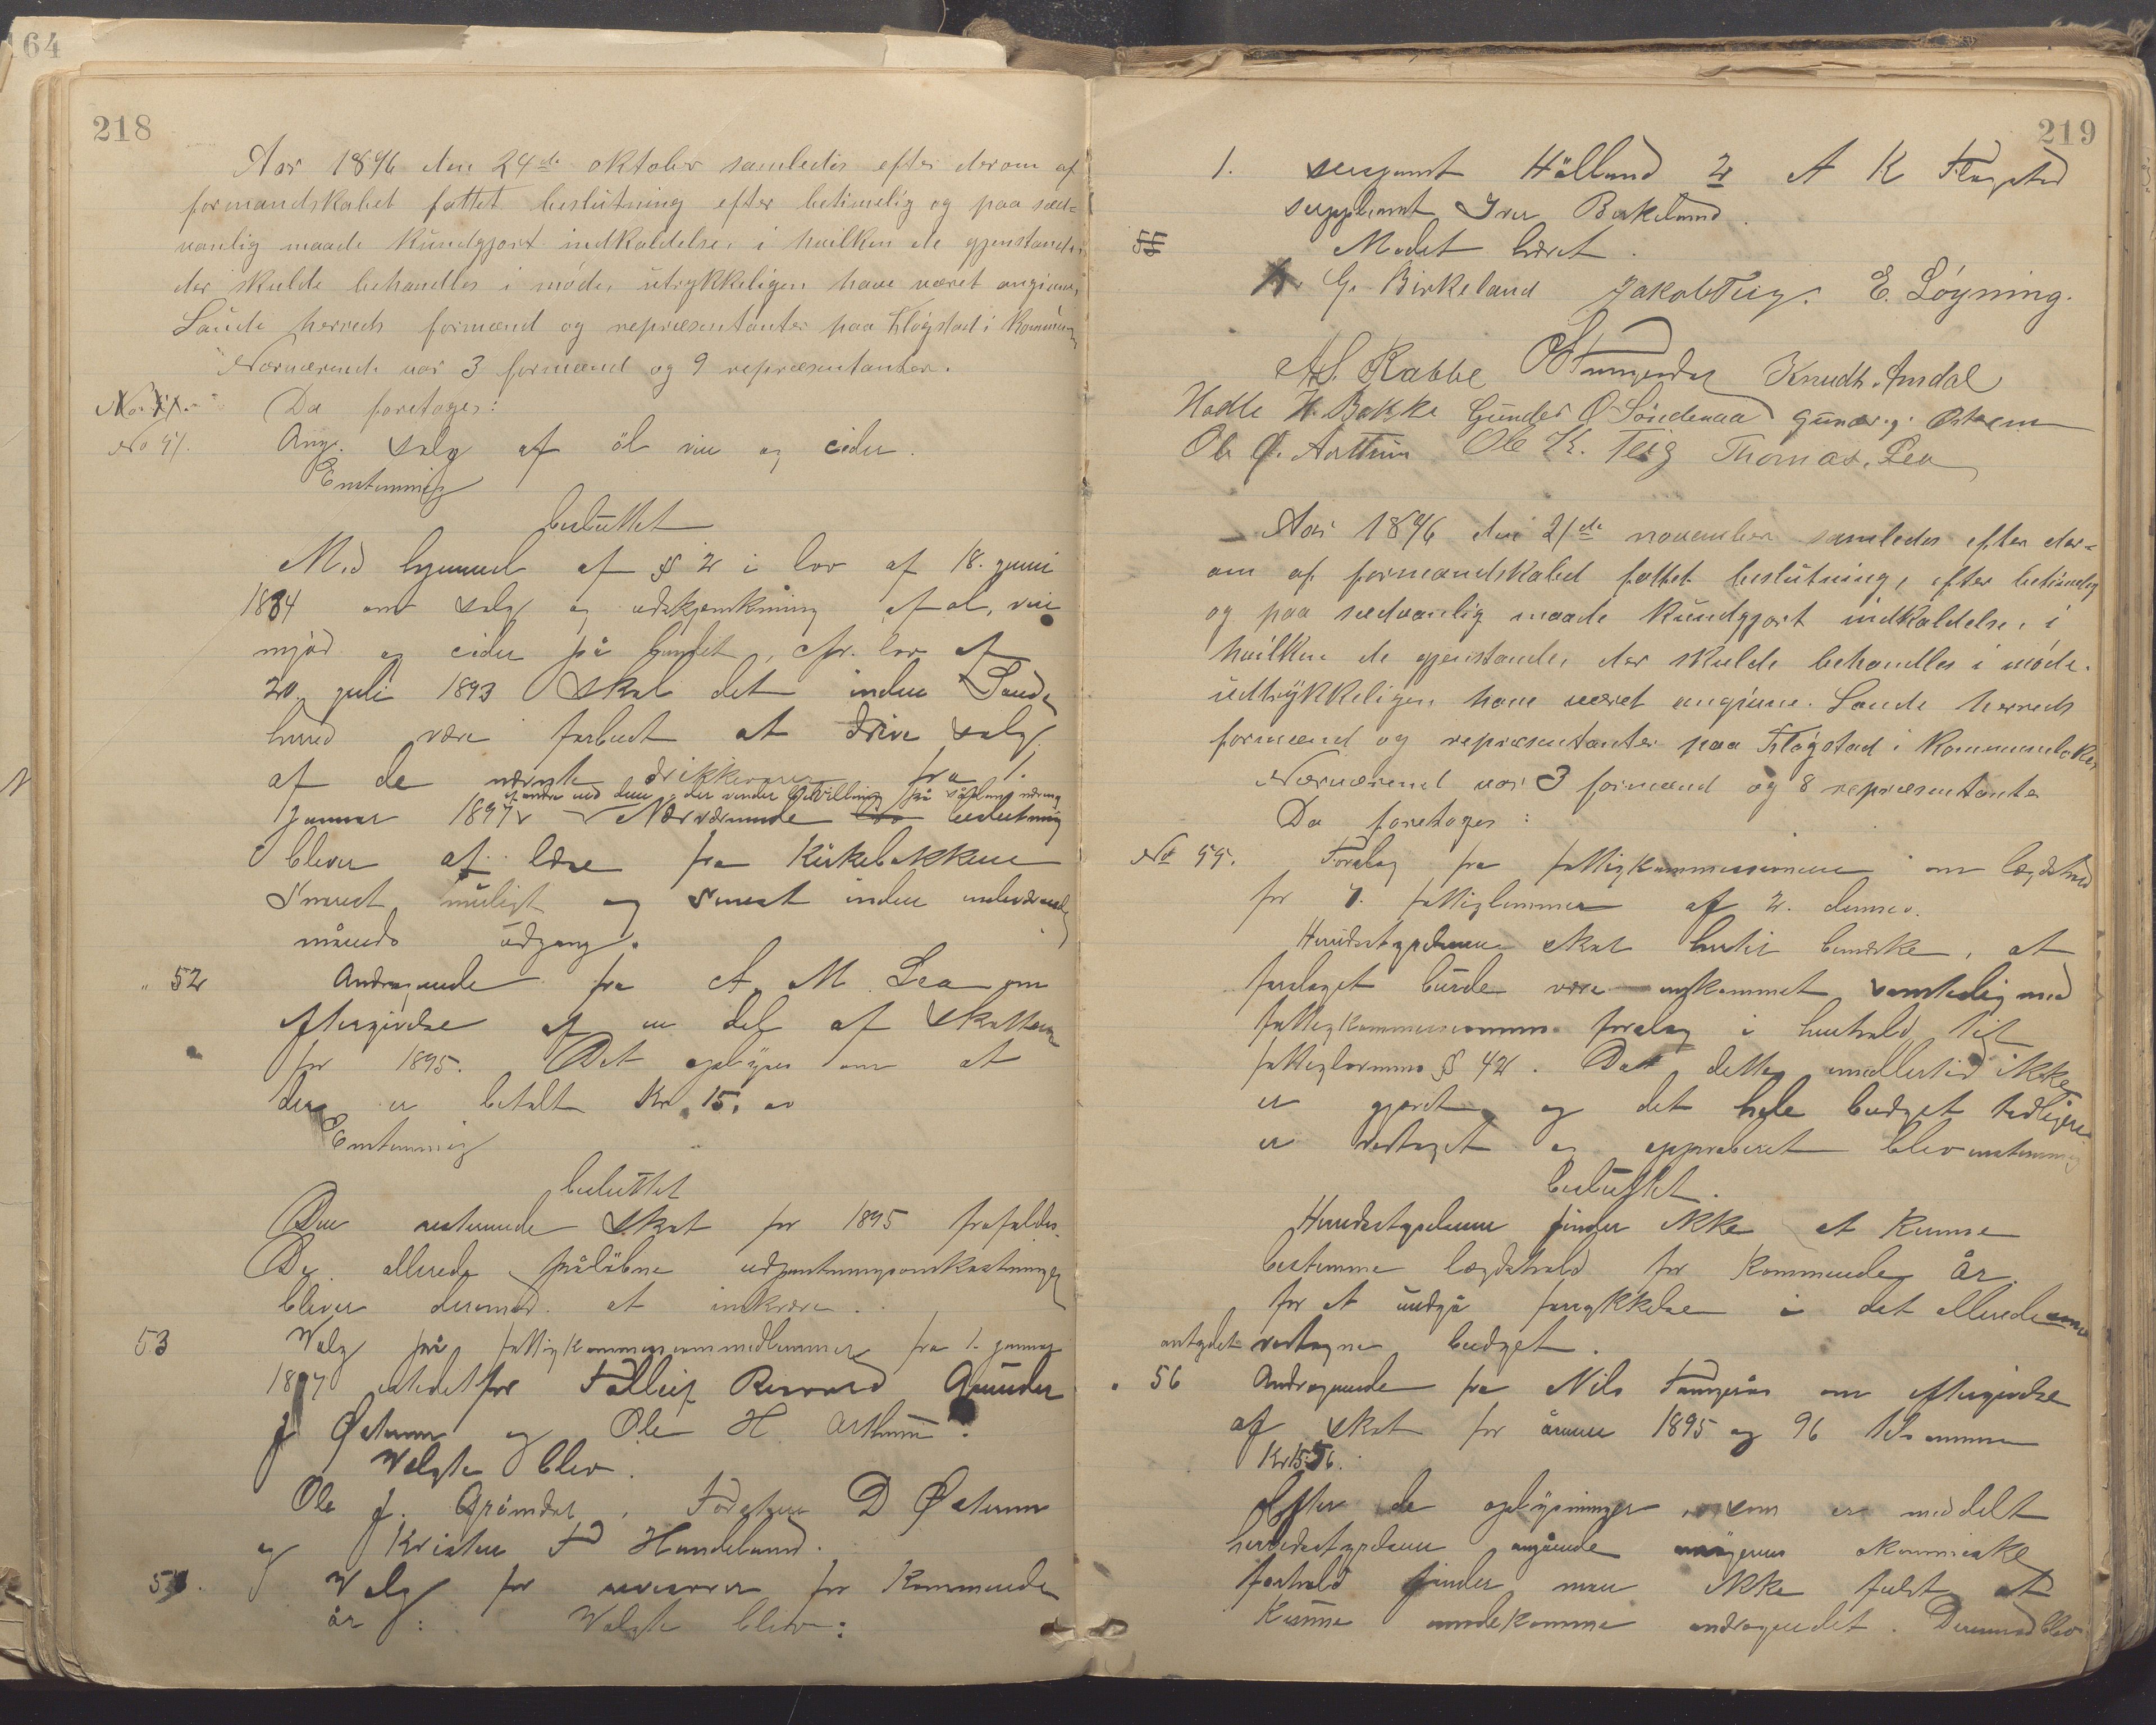 164
218
Aar 1896 den 24de oktober samledes efter derom af
formandskabet fattet beslutning efter betimelig og paa sæd-
vanlig maade kundgjort indkaldelse, i hvilken de gjenstande,
der skulde behandles i møde, utrykkeligen have været angivne,
Saude herreds formænd og repræsentanter paa Fløgstad i
Nærværende var 3 formænd og 9 repræsentanter.
Da foretoges:
No 51. Ang. salg af øl vin og cider.
Enstemmig
besluttet
Med hjemmel af § 2 i lov af 18. juni
1884 om salg og udskjænkning af øl, vin
mjød og cider på landet, cfr. lov af
20. juli 1893 skal det inden Saude
herred være forbudt at drive salg
af de nævnte drikkevarer fra 1.
af andre end dem der vinder bevilling på
Januar 1897. Nærværende beslutning
bliver at læse fra Kirkebakkene
snarest muligt og senest inden indeværende
måneds udgang.
" 52 Andragende fra A. M. Lea om
eftergivelse af en del af skatten
for 1895. Det oplyses om at
der er betalt Kr. 15,00
Enstemmig
besluttet
Den resterende skat for 1895 frafaldes.
De allerede påløbne udpantningsomkostninger
bliver derimod at inkræve.
53 Valg på fattigkommissionsmedlemmer fra 1. januar
1897 istedetfor Tolleif Gunder
J Østrem og Ole H Arthun.
Valgte blev.
Ole J. Grøndal, D Østrem
og Kristen T Handeland.
54. Valg for revisorer for kommende
år: Valgte blev:
219
1. sersjant Hølland 2 A K Fløgstad
suppleant Iver Birkeland.
55 Mødet hævet.
G. Birkeland Jakob Teig. E. Løyning.
A S. Rabbe Knudt. Amdal
Hodle H. Bakke Gunder O Søndenaa Gunder. J. Østrem
Ole O. Arttun Ole K. Teig Thomas. Lea
Aar 1896 den 21de november samledes efter der-
om af formandskabed fattet beslutning, efter betimelig
og paa sædvanlig maade kundgjort indkaldelse, i
hvilken de gjenstande, der skulde behandles i møde.
udtrykkeligen have været angivne. Saude herreds
formænd og repræsentanter paa Fløgstad i kommunelokal
Nærværend var 3 formænd og 8 repræsentanter
Da foretoges:
No 55. Forslag fra fattigkommissionen om lægdshold
for 7. fattiglemmer af 2. dennes.
Herredsstyrelsen skal hertil bemærke, at
forslaget burde være indkommet samtidig med
fattigkommissionens forslag i henhold til
fattiglovens § 42. Da dette imidlertid ikke
er gjort og det hele budget tidligere
er vedtaget og approberet blev enstemmig
besluttet.
Herredsstyrelsen finder ikke at kunne
bestemme lægdshold for kommende år.
for at undgå forrykkelse i det allerede
vedtagne budget.
" 56 Andragende fra Nils om eftergivelse
af skat for årene 1895 og 96 tilsammen
Kr 15.56.
Efter de oplysninger, som er meddelt
herredsstyrelsen angående økonomiske
forhold finder man ikke fuldt at
kunne imødekomme andragendet. Derimod blev